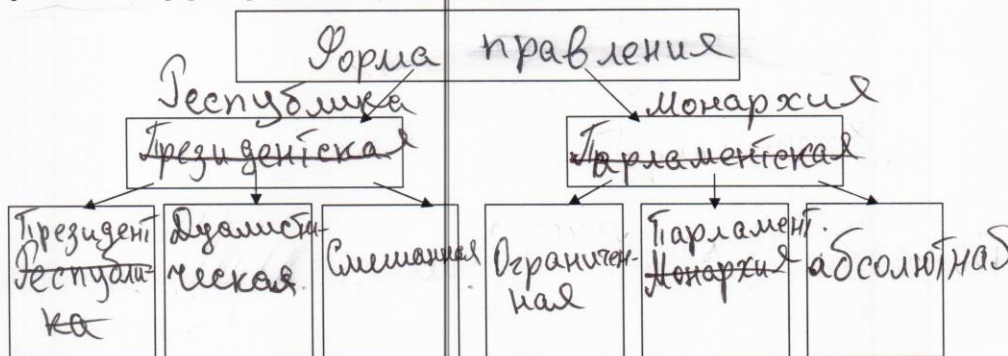 Форма правления
Республика
Монархия
Президентская
Парламентская
Президент
Республи-
ка
Дуалисти-
ческая
Смешанная
Ограничен-
ная
Парламент.
Монархия
абсолютная